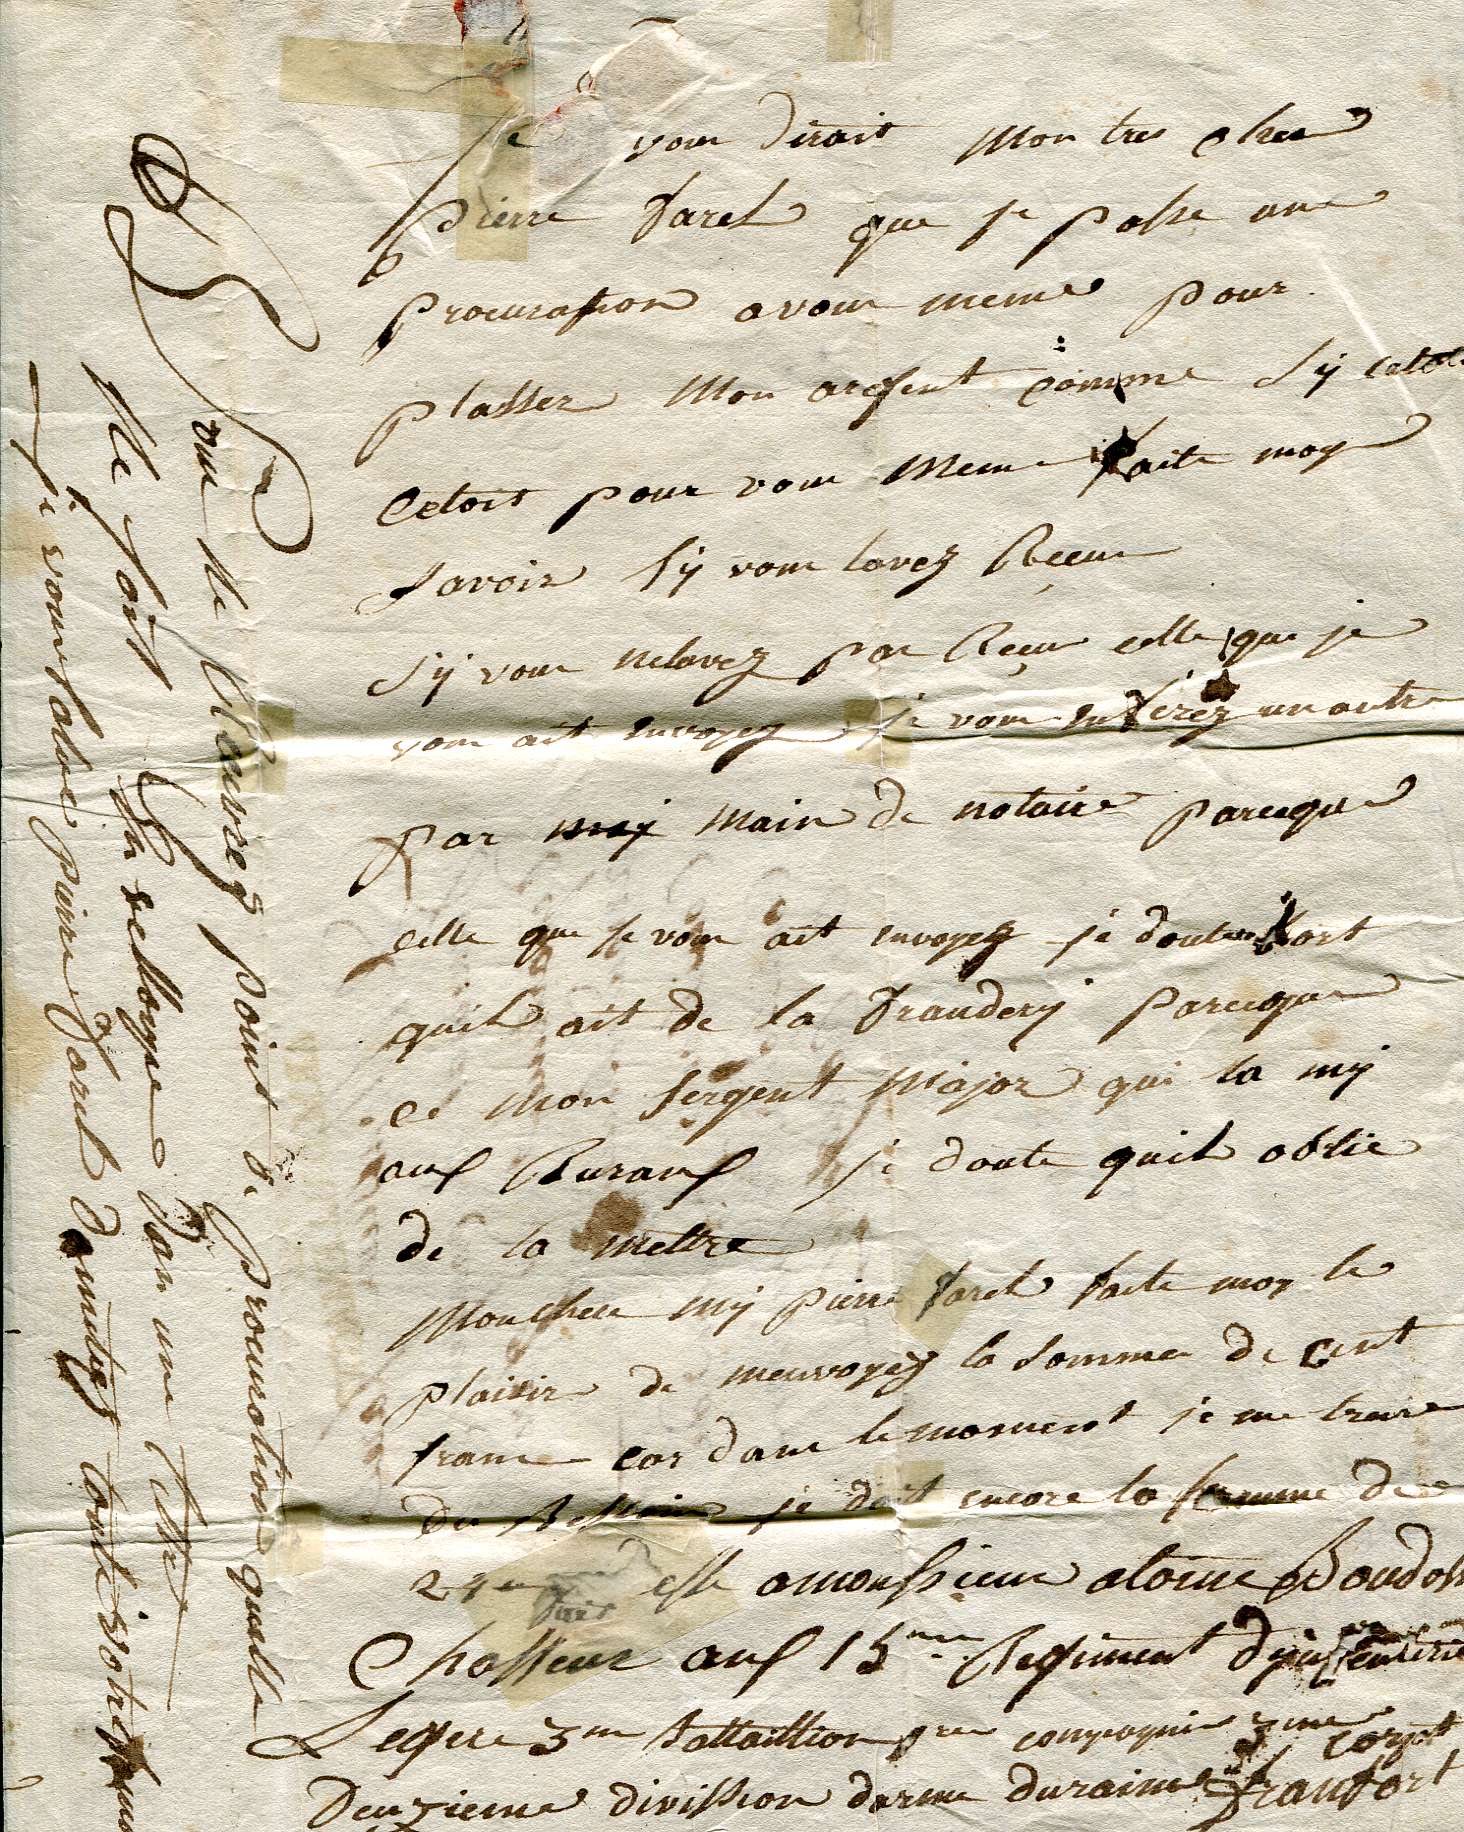 Je vous dirait Mon tres cher
Pierre farel que je passe une
procuration a vous meme pour
plasser Mon argent comme sy
cetoit pour vous meme faite moy
savoir sy vous lavez Recue
sy vous nelavez pas Recue celle que je
vous ait envoyez je vous en ferez un autre
par main de notaire parceque
celle que je vous ait envoyez je doute fort
quil ait de la frauderij parceque
ce mon sergent Major qui la mij
aux Buraux je doute quil oblie
de la mettre
Mon cher mij pierre farel faite moy le
plaisir de menvoyez la somme de cent
franc car dans le moment je me trouve
du Bessoin je doit encore la somme de
amonssieur Boudo
Chasseur aux 15me Regiment dijnfenterie
Legere 3me Battaillion 1re compagnie 3me corps
Deuzieme divission darme duraim a franfort
Vous ne Reusez point de procuration quelle
ne soit dan une lettre
Je vous salue pierre farel toute votre